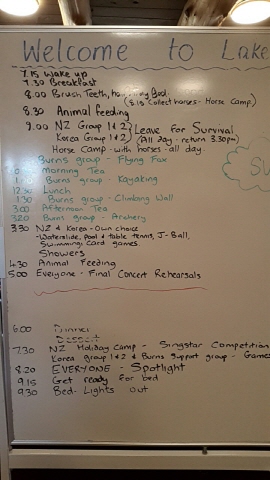 Welcome to Lake
7.15 Wake up
7.30 Breakfast
8.00 Brush Teeth, bed.
(8.15 collect horses - Horse Camp.)
8.30 Animal feeding
9.00 NZ Group 1 & 2 Leave For Survival
Korea Group 1 & 2 (All day - return 3.30pm)
Horse Camp - with horses - all day.
Burns group - Flying Fox
Morning Tea
Burns group - Kayaking
12.30 Lunch
1.30 Burns group - Climbing Wall
3.00 Afternoon Tea
3.20 Burns group - Archery
3.30 NZ & Korea - own choice
- Waterslide, Pool & table tennis, J-Ball,
Swimming, Card games.
Showers
4.30 Animal Feeding
5.00 Everyone - Final Concert Rehearsals
SU
6.00 Dinner
Dessert
7.30 NZ Holiday Camp - Singstar Competition
Korea group 1 & 2 & Burns Support group - Game
8.20 EVERYONE - Spotlight
9.15 Get ready for bed
9.30 Bed. Lights out